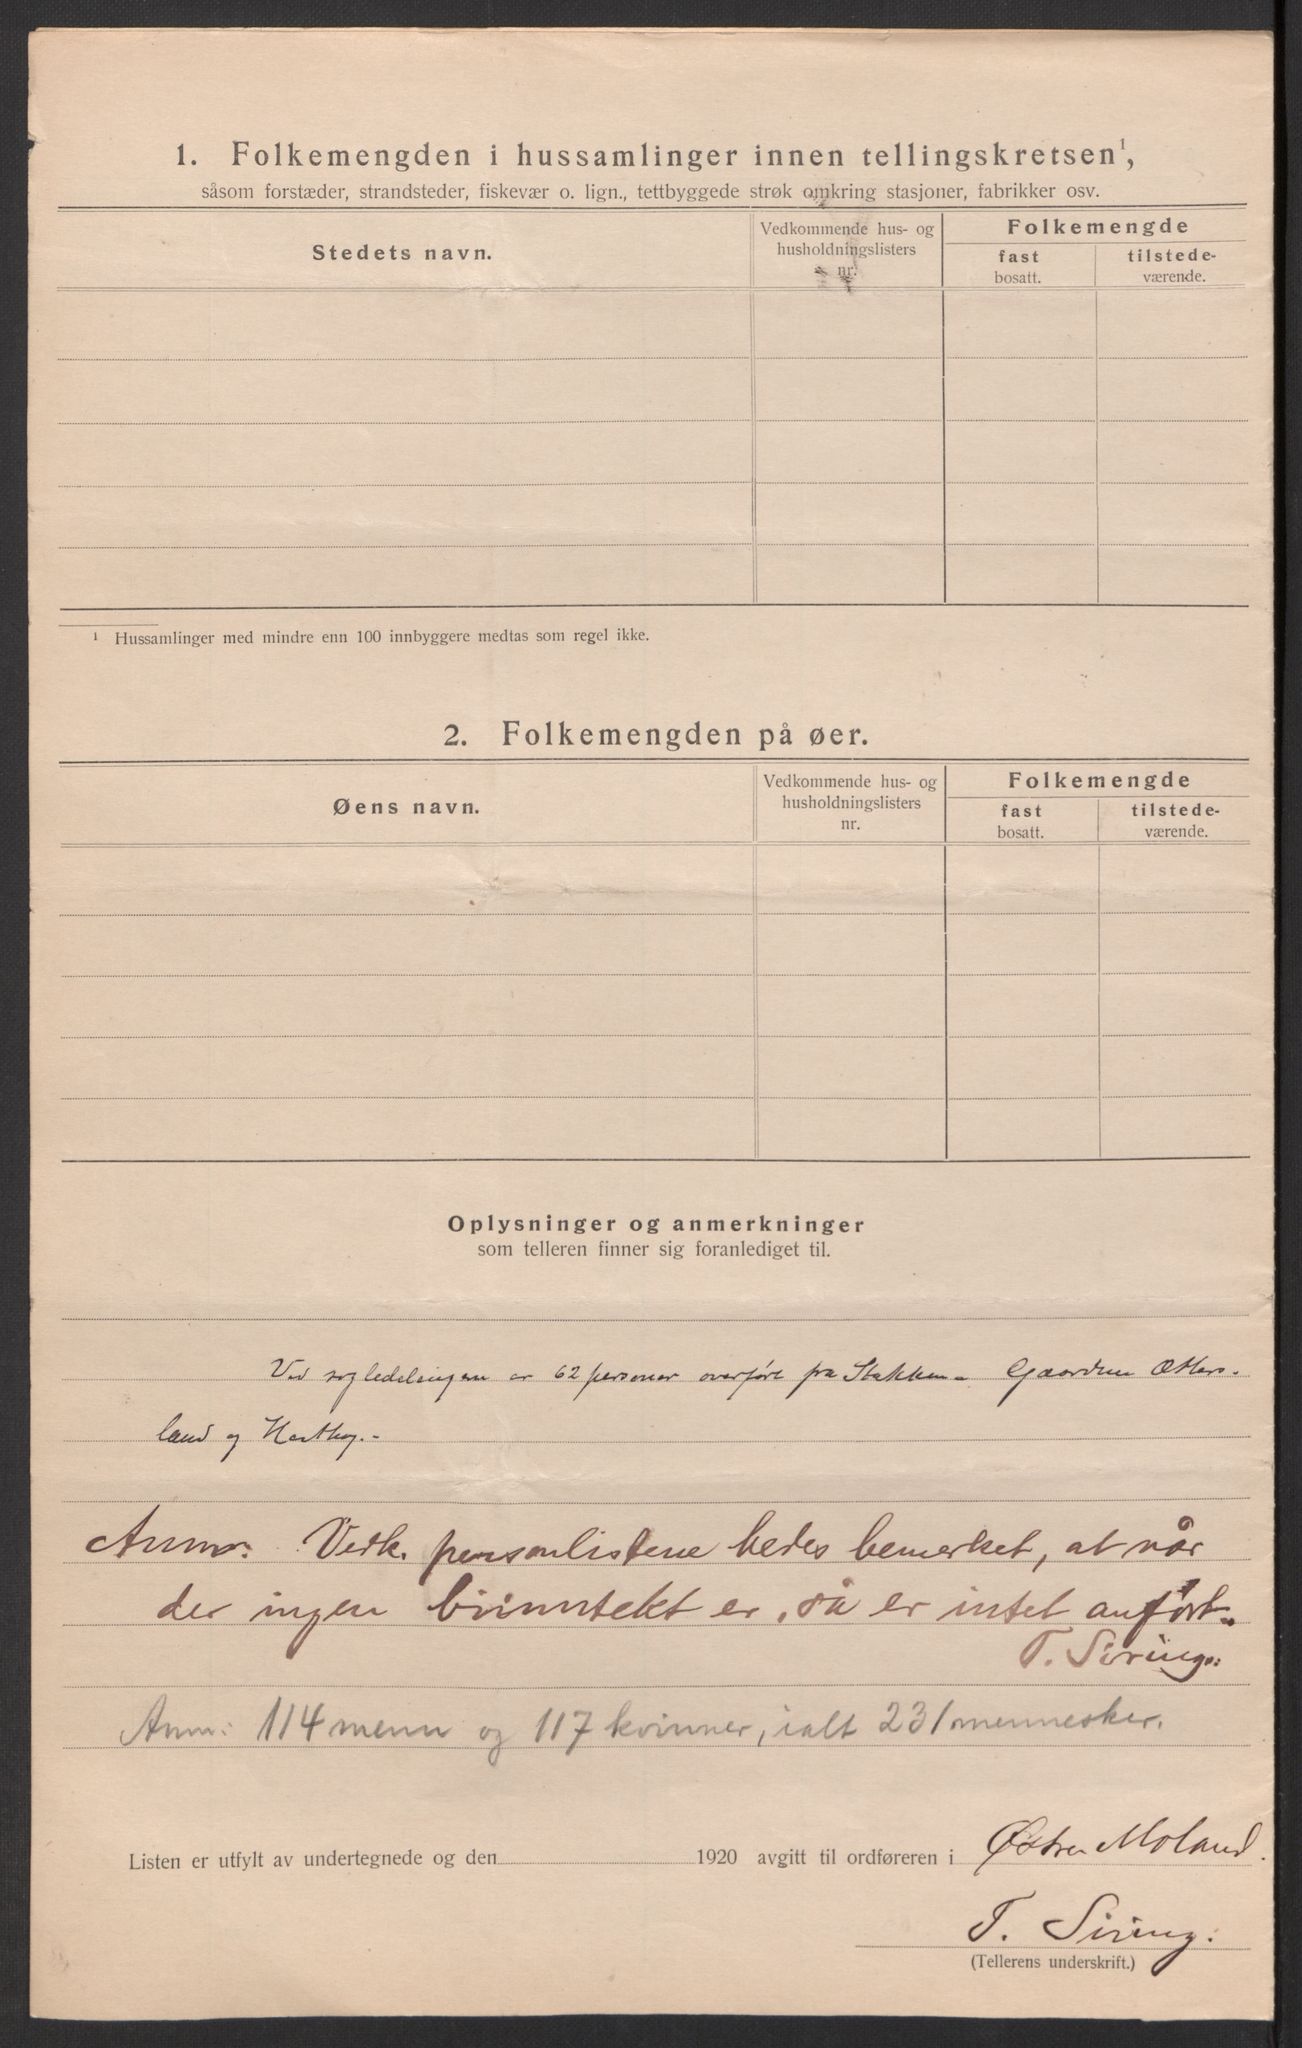 1. Folkemengden i hussamlinger innen tellingskretsen¹,
såsom forstæder, strandsteder, fiskevær o. lign., tettbyggede strøk omkring stasjoner, fabrikker osv.
Stedets navn.
Vedkommende hus- og
husholdningslisters
nr.
Folkemengde
fast
bosatt.
tilstede-
værende.
¹ Hussamlinger med mindre enn 100 innbyggere medtas som regel ikke.
2. Folkemengden på øer.
Øens navn.
Vedkommende hus- og
husholdningslisters
nr.
Folkemengde
fast
bosatt.
tilstede-
værende.
Oplysninger og anmerkninger
som telleren finner sig foranlediget til.
Ved er 62 personer overført fra Stokken - Gaarden
land og
Anm: Vedk. personlistene bedes bemerket, at når
der ingen biinntekt er, så er intet anført.
T. Siring:
Anm: 114 menn og 117 kvinner, ialt 231 mennesker.
Listen er utfylt av undertegnede og den 1920 avgitt til ordføreren i Østre Moland.
T. Siring:
(Tellerens underskrift.)